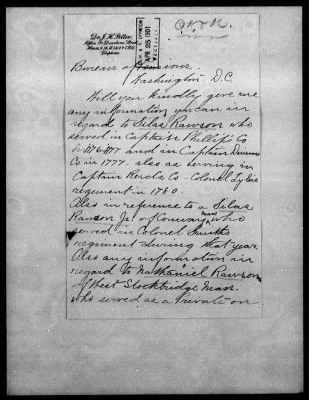 Dr. J. H. Potter,
Office
Hours
Telephone
APR 25 1901
Bureau of Pensions.
Washington D.C.
Will you kindly give me
any information you can in
regard to Silas Rawson who
served in Captain Phillips Co
in 1776-777 and in Captain
Co in 1777. also as serving in
Captain Co - Colonel
regiment in 1780.
Also in reference to a Silas
Rawson Jr. of Conway Mass who
served in Colonel Smiths
regiment during that year.
Also any information in
regard to Nathaniel Rawson
of West Stockbridge Mass.
who served as a private on